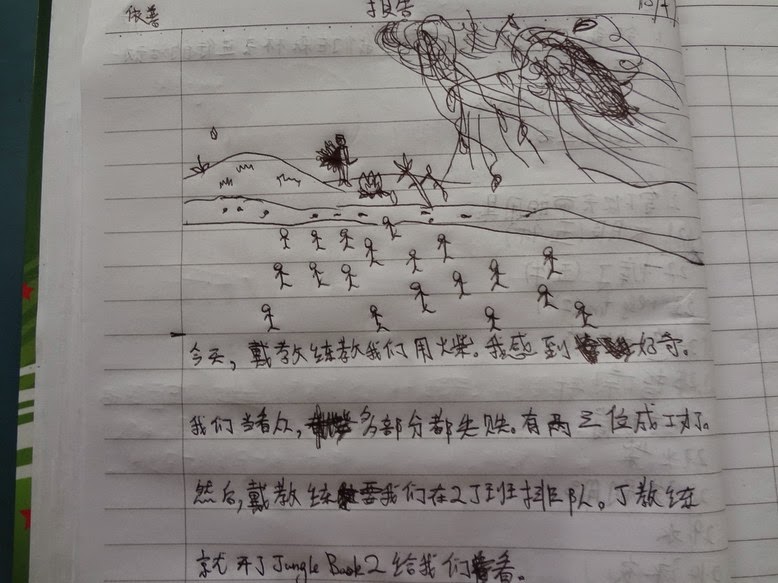 报告
今天，戴教练教我们用火柴。我感到好奇。
我们当看众，多部分都失败。有两三位成功了。
然后，戴教练要我们在2丁班排队。丁教练
就开了Jungle Book 2 给我们看。